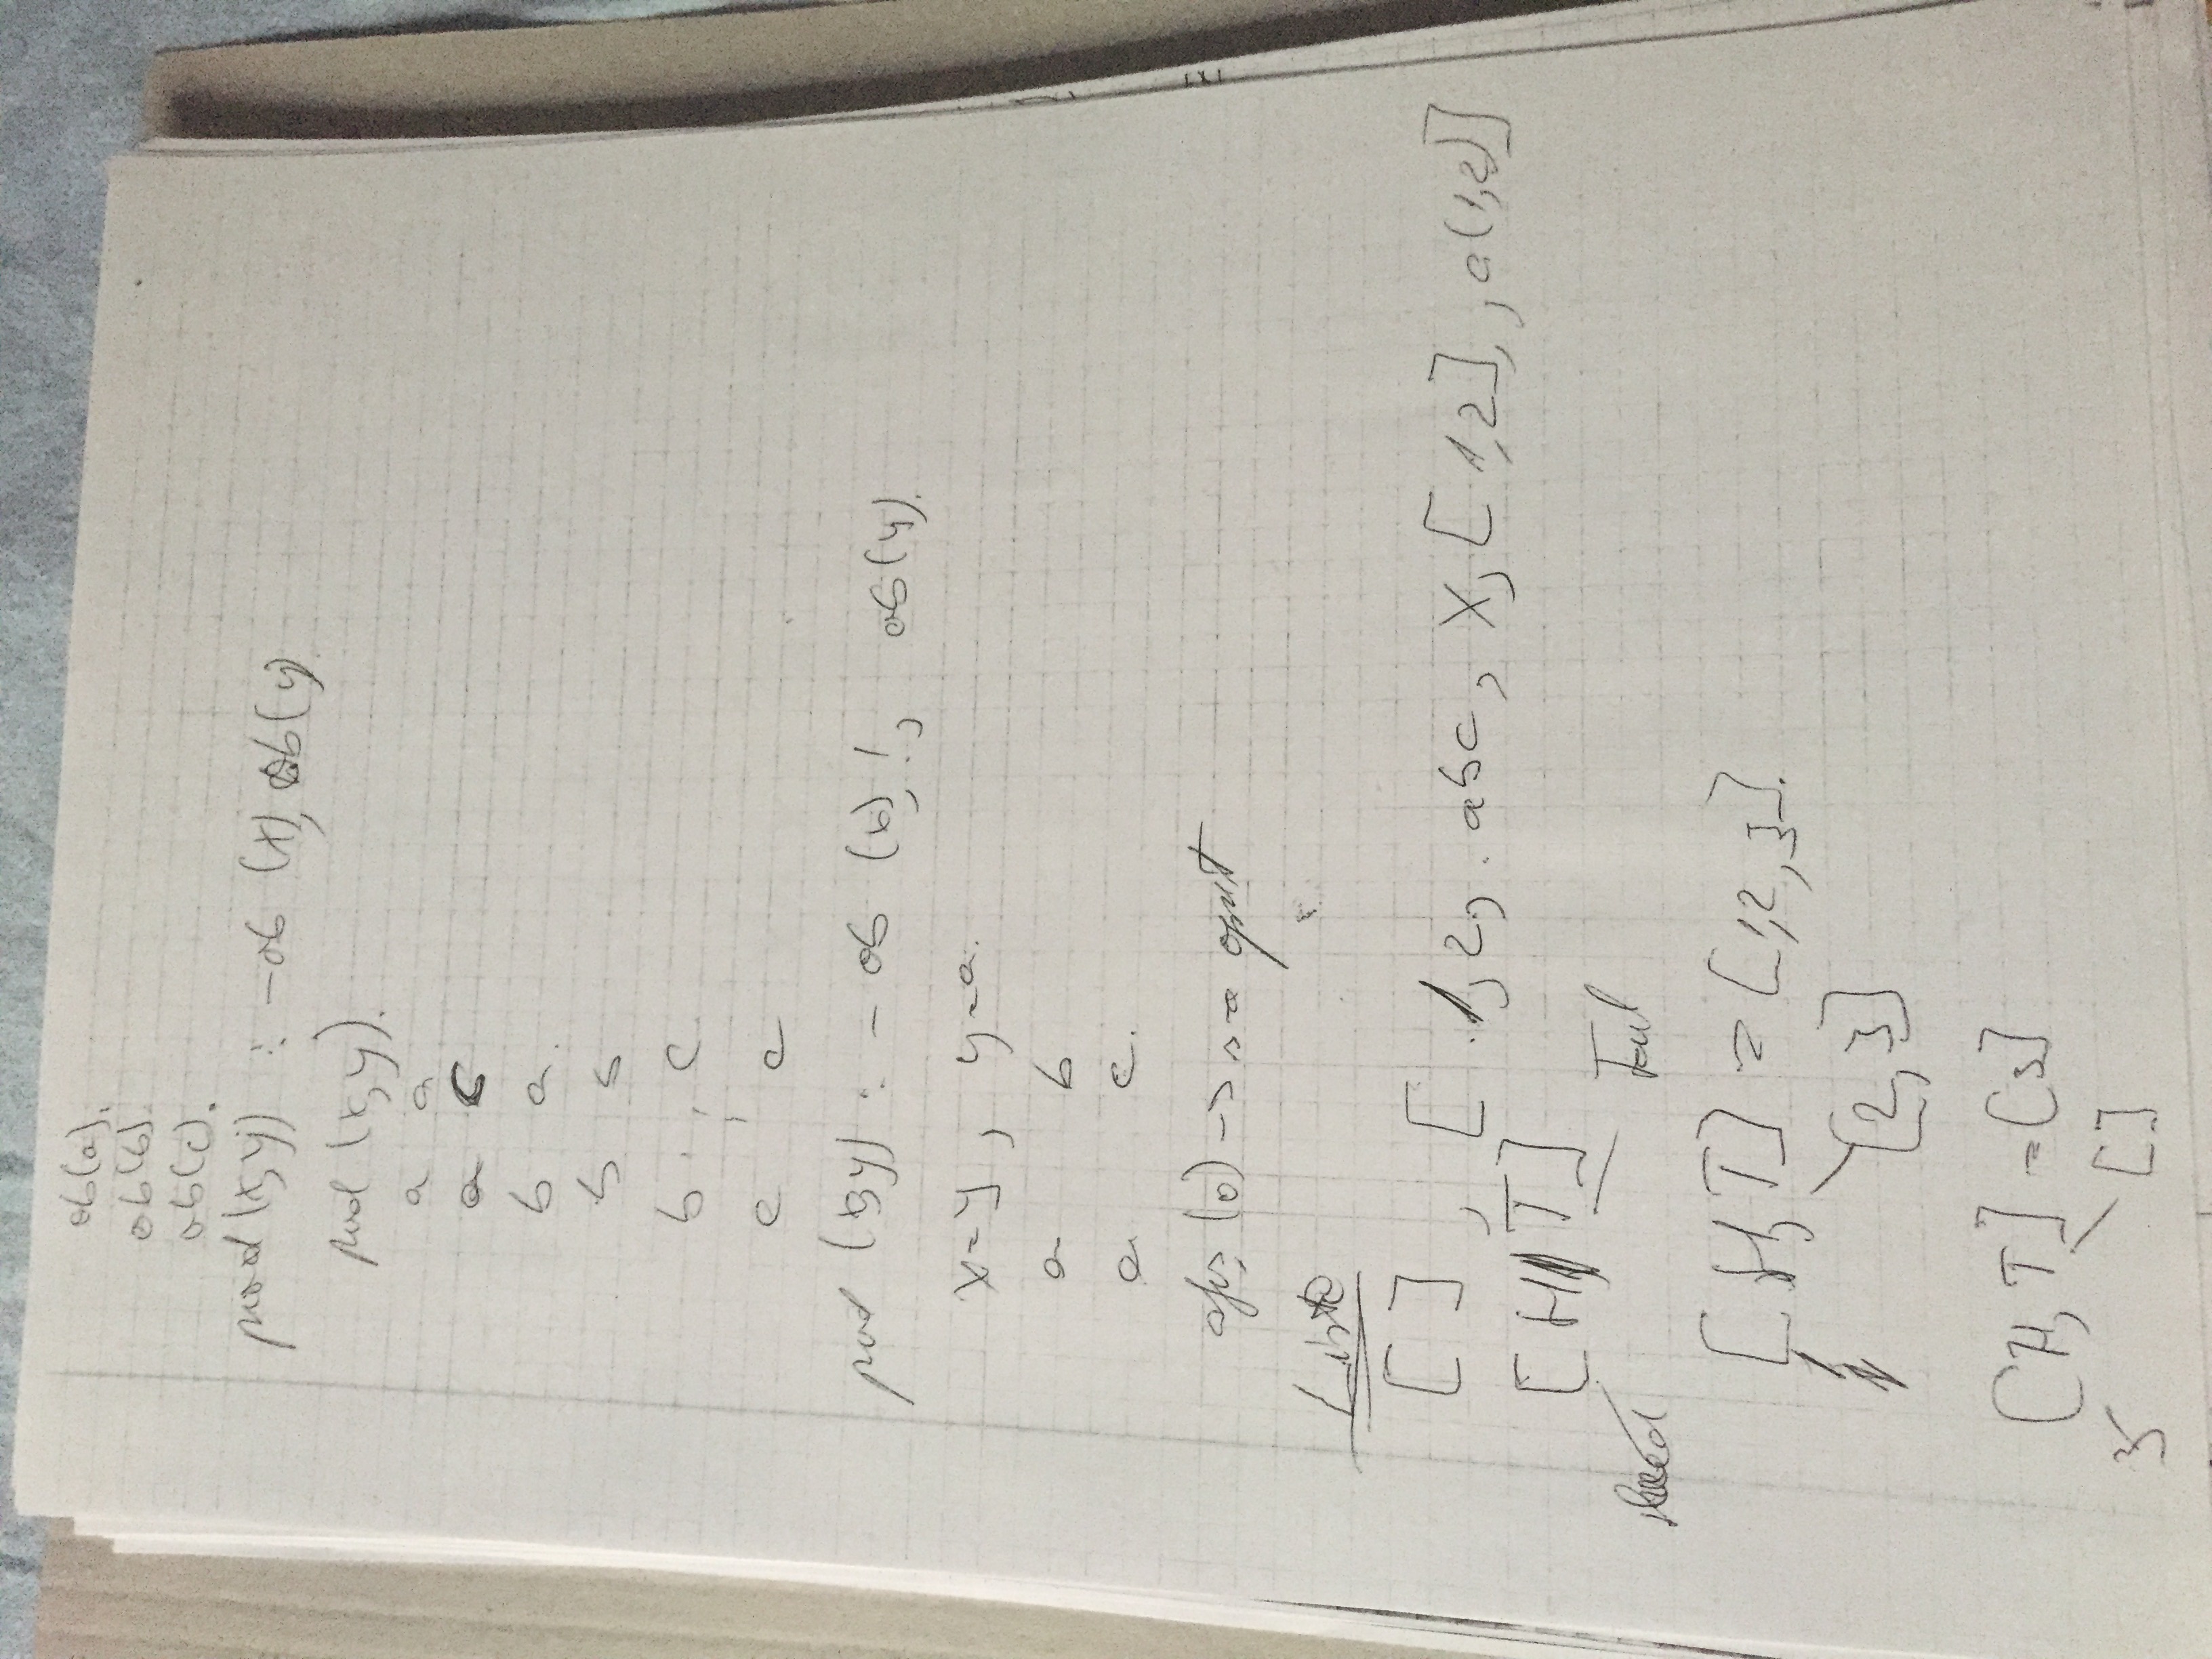 ob(a).
ob(b).
ob(c).
prod(x,y) :-ob (x), ob(y).
prod (x,y).
a a
a c
b a.
b b
b , c
c c
prod (x,y) :- ob (x), !, ob(y).
x=y, y=a.
a b
a c.
afis (o) -> s-a oprit
Liste
[ ], [ 1, 2, abc, X, [1,2], , a(1,2)]
[H|T]
Head Tail
[H,T] = [1,2,3].
1 [2,3]
[H,T] = [3]
3 []